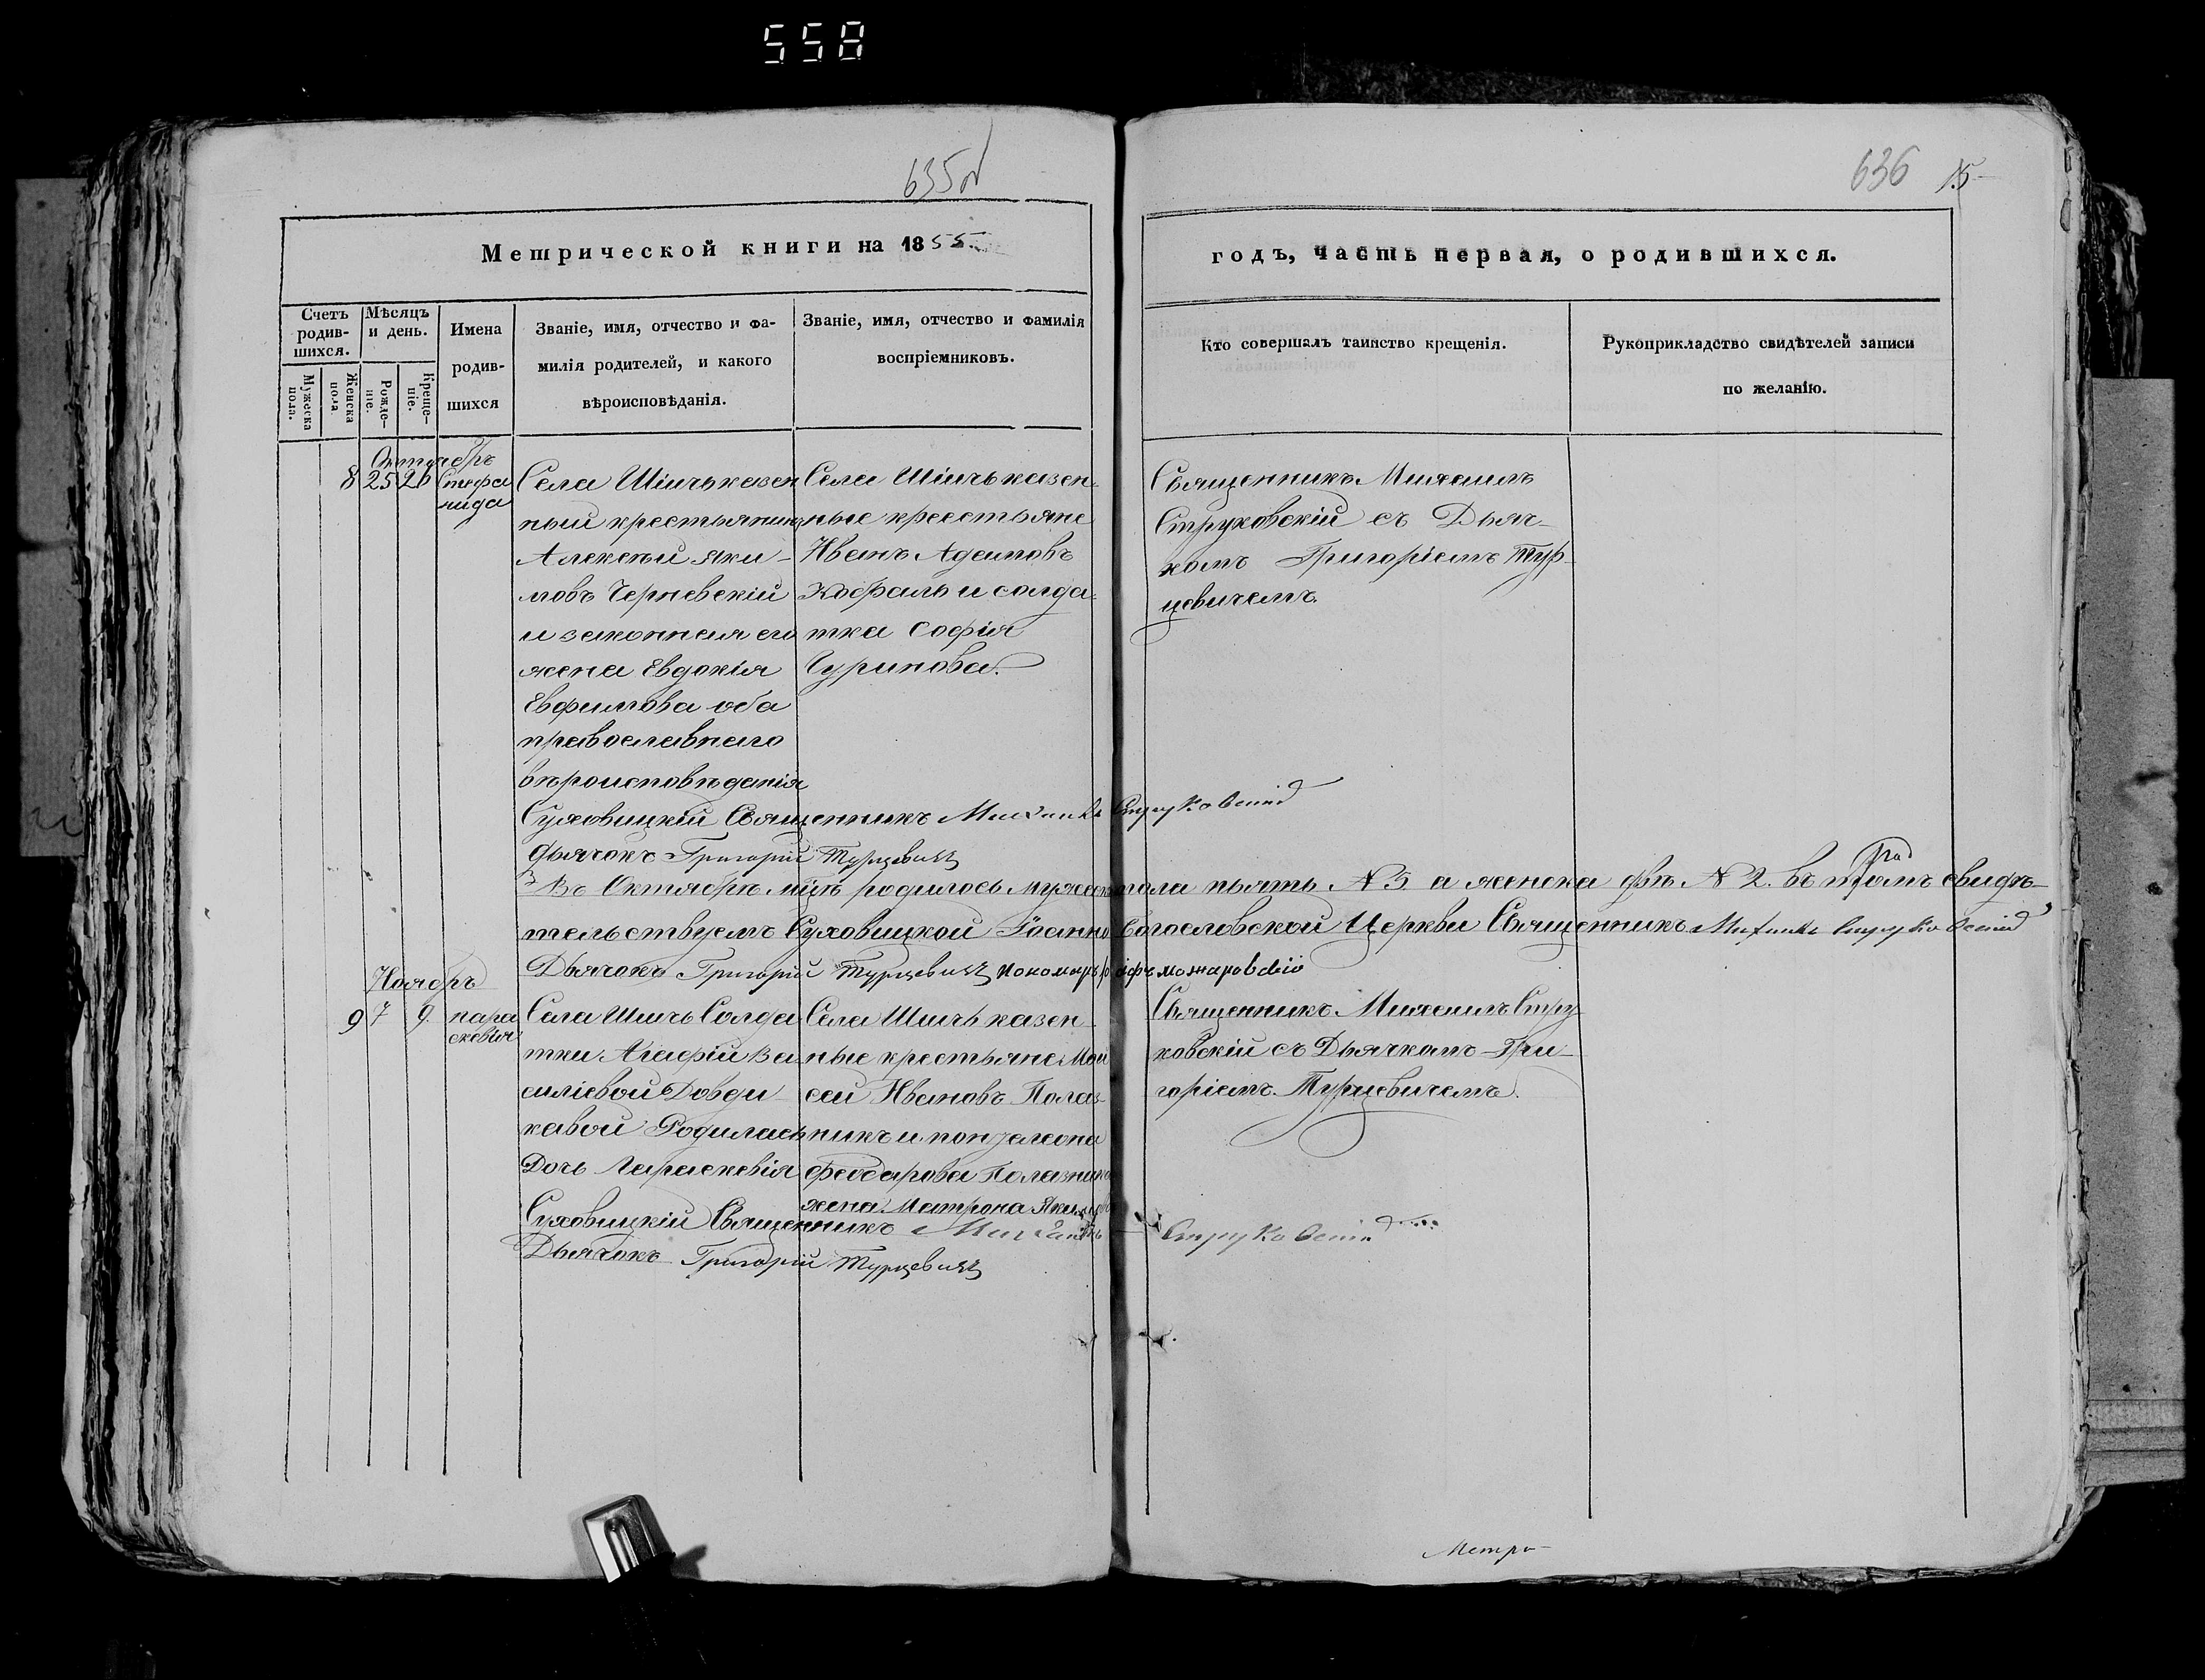 558
635об
636 15
Метрической книги на 1855
годъ, часть первая, о родившихся.
Счетъ родив-шихся.
Мѣсяцъ и день.
Имена родив-шихся
Званіе, имя, отчество и фа-
милія родителей, и какого
вѣроисповѣданія.
Званіе, имя, отчество и фамилія
воспріемниковъ.
Кто совершалъ таинство крещенія.
Рукоприкладство свидѣтелей записи
по желанію.
Мужеска пола.
Женска пола
Рожде-ніе.
Креще-ніе.
Октябрь
8 25 26 Стефа
нида
Села Шіичь казен
ный крестьянинъ
Алексѣй Яки-
мовъ Черневскій
и законная его
жена Евдокія
Евфимова оба
православнаго
вѣроисповѣданія
Села Шіичь казен-
ные крестьяне
Иванъ Адамовъ
Кофаль и солда-
тка Софія
Чуринова.
Священникъ Михаилъ
Струковскій съ Дьяч-
комъ Григоріемъ Тур-
цевичемъ.
Суховицкій Священникъ Михаилъ Струковскій
Дьячокъ Григорій Турцевичъ
Въ Октябрѣ мцѣ родилось мужеска пола пьять № 5 а женска двѣ № 2. въ томъ свидѣ-
тельствуемъ Суховицкой Іоанно Богословской Церкви Священникъ Михаилъ Струковскій
Дьячокъ Григорій Турцевичъ пономарь можаровскій
Ноябрь
9 7 9 пара
скевія
Села Шіичь Солда
тки Агафіи Ва
силіевой Довди
кавой Родилась
Дочь Параскевія
Села Шіичь казен-
ные крестьяне Мои
сей Ивановъ Полаз-
никъ и понталеона
Феодарова Полазника
жена Матрона Якимова
Священникъ Михаилъ Стру
ковскій съ Дьячкомъ Гри-
горіемъ Турцевичемъ.
Суховицкій Священникъ Михаилъ Струковскій
Дьячокъ Григорій Турцевичъ
Метри-